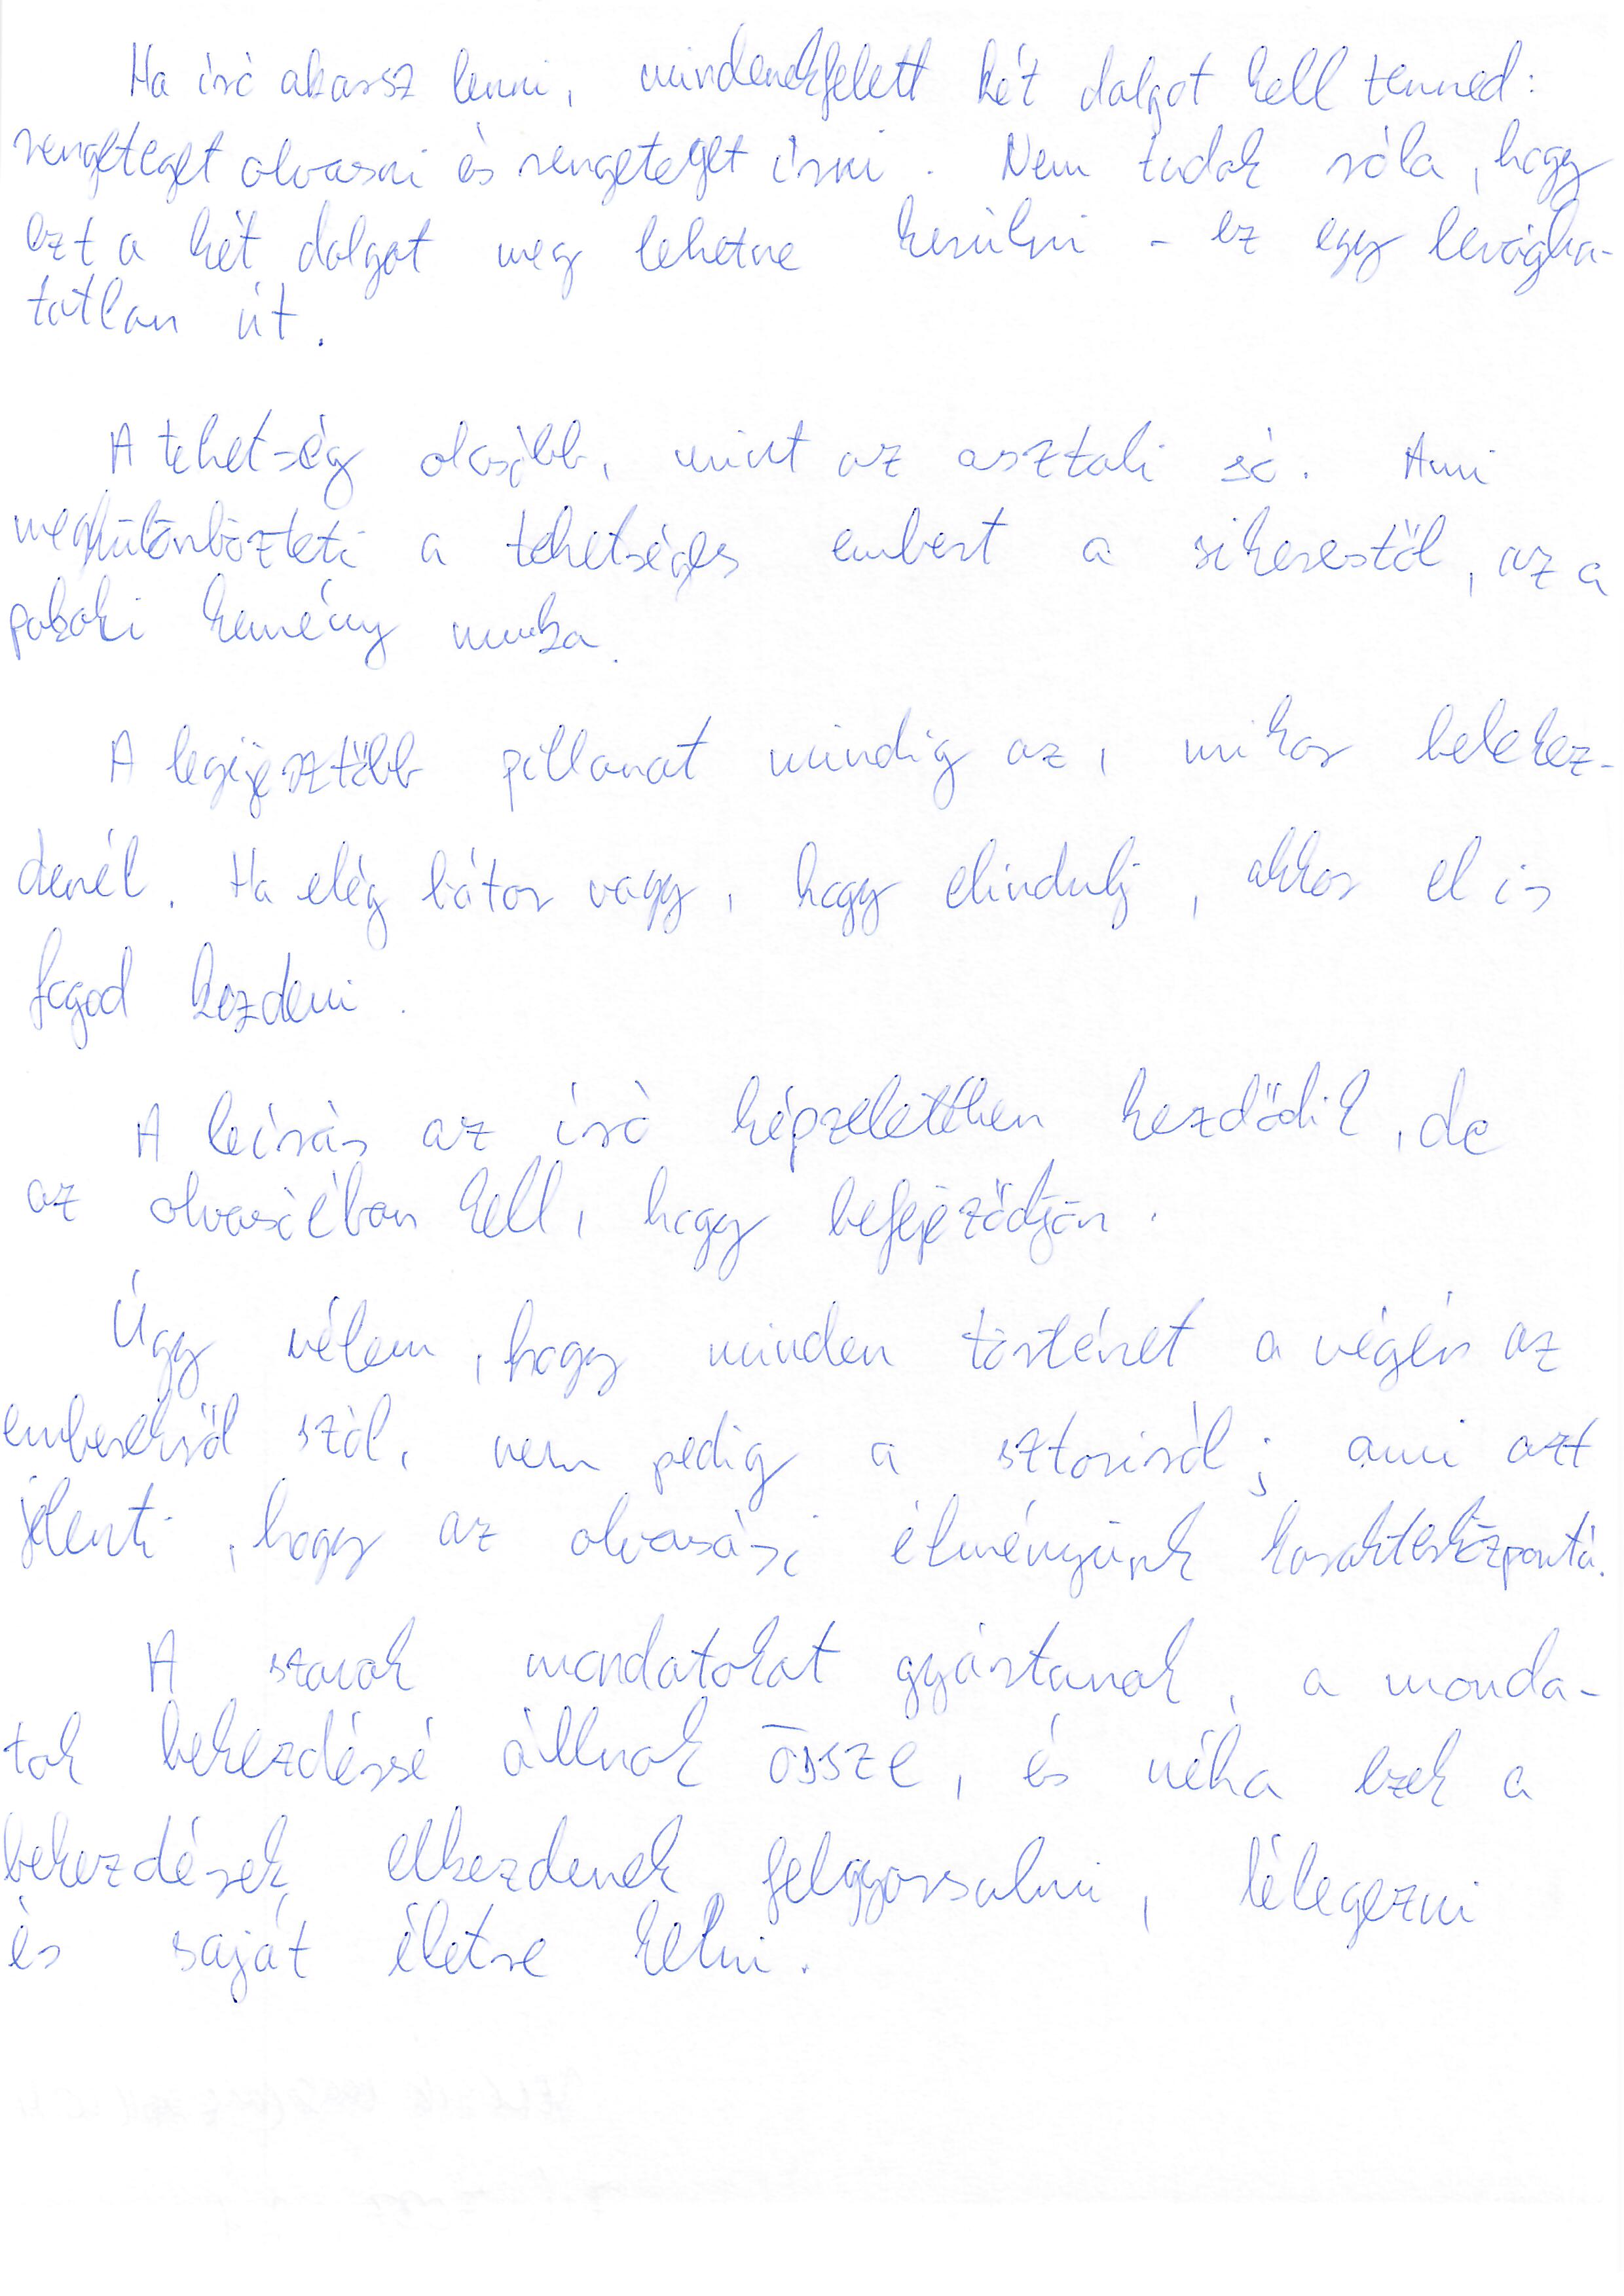 Ha író akarsz lenni, mindenekfelett két dolgot kell tenned:
rengeteget olvasni és rengeteget írni. Nem tudok róla, hogy
ezt a két dolgot meg lehetne kerülni - ez egy levágha-
tatlan út.
A tehetség olcsóbb, mint az asztali só. Ami
megkülönbözteti a tehetséges embert a sikerestől, az a
pokoli kemény munka.
A legijesztőbb pillanat mindig az, mikor belekez-
denél. Ha elég bátor vagy, hogy elindulj, akkor el is
fogod kezdeni.
A leírás az író képzeletében kezdődik, de
az olvasóéban kell, hogy befejeződjön.
Úgy vélem, hogy minden történet a végén az
emberekről szól, nem pedig a sztoriról; ami azt
jelenti, hogy az olvasási élményünk karakterközpontú.
A szavak mondatokat gyártanak, a monda-
tok bekezdéssé állnak össze, és néha ezek a
bekezdések elkezdenek felgyorsulni, lélegezni
és saját életre kelni.